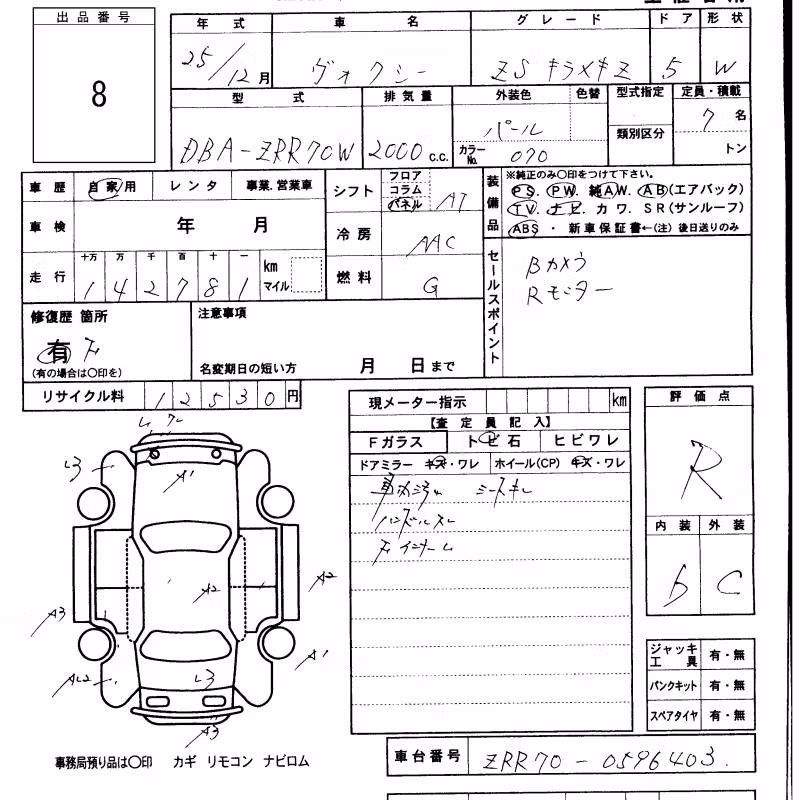 出品番号
8
年式 車名 グレード ドア 形状
25/12月 ヴォクシー ZS キラメキZ 5 W
型式 排気量 外装色 色替 型式指定 定員・積載
DBA-ZRR70W 2000c.c. パール 7名
カラーNo. 070 類別区分 トン
車歴 自家用 レンタ 事業.営業車
シフト フロア コラム パネル AT
車検 年 月
冷房 AAC
走行 十万 万 千 百 十 一 km マイル
142781
燃料 G
装備品 ※純正のみ〇印をつけて下さい。
PS. PW. 純AW. AB(エアバック)
TV. ナビ. カワ. SR(サンルーフ)
ABS ・ 新車保証書←(注) 後日送りのみ
セールスポイント
Bカメラ
Rモニター
修復歴 箇所
有 F
(有の場合は〇印を)
注意事項
名変期日の短い方 月 日まで
リサイクル料 12530円
現メーター指示 km
【査定員記入】
Fガラス トビ石 ヒビワレ
ドアミラー キズ・ワレ ホイール(CP) キズ・ワレ
シートキレ
ハンドルスレ
Fインナー
評価点
R
内装 外装
b C
ジャッキ工具 有・無
パンクキット 有・無
スペアタイヤ 有・無
L3
A1
A2
A2
A3
A1
AL2
L3
A3
事務局預り品は〇印 カギ リモコン ナビロム
車台番号 ZRR70-0596403.